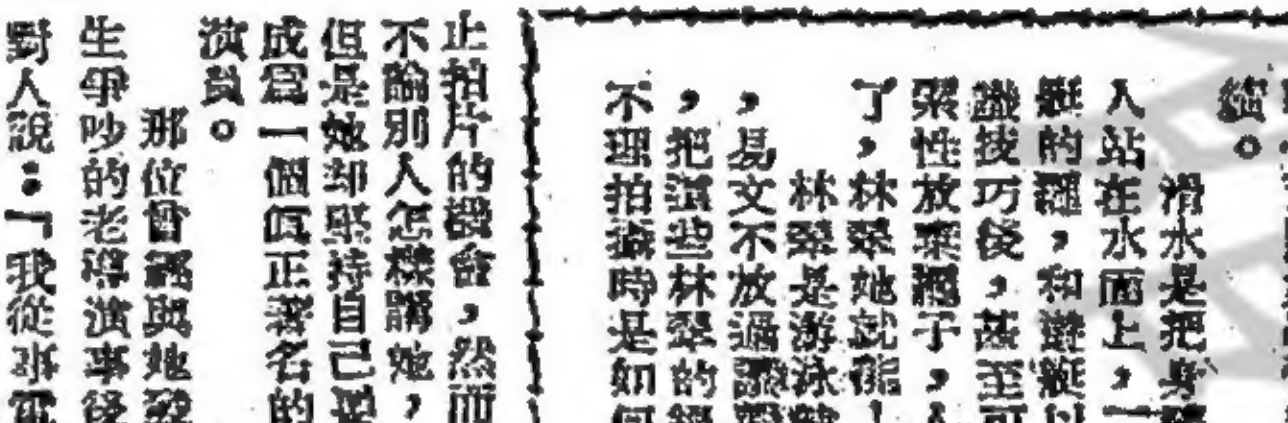 繽。
滑水是把身
人站在水面上,一
艇的繩,和遊艇以
識技巧後,甚至可
索性放棄繩子,人
了,林翠她就能
林翠是游泳
,易文不放過
,把這些林翠的
不理拍攝時是如何
止拍片的機會,然而
不論別人怎樣謂她,
但是她却堅持自己
成爲一個眞正著名的
演員。
那位曾經與她發
生爭吵的老導演事後
對人說:『我從事電